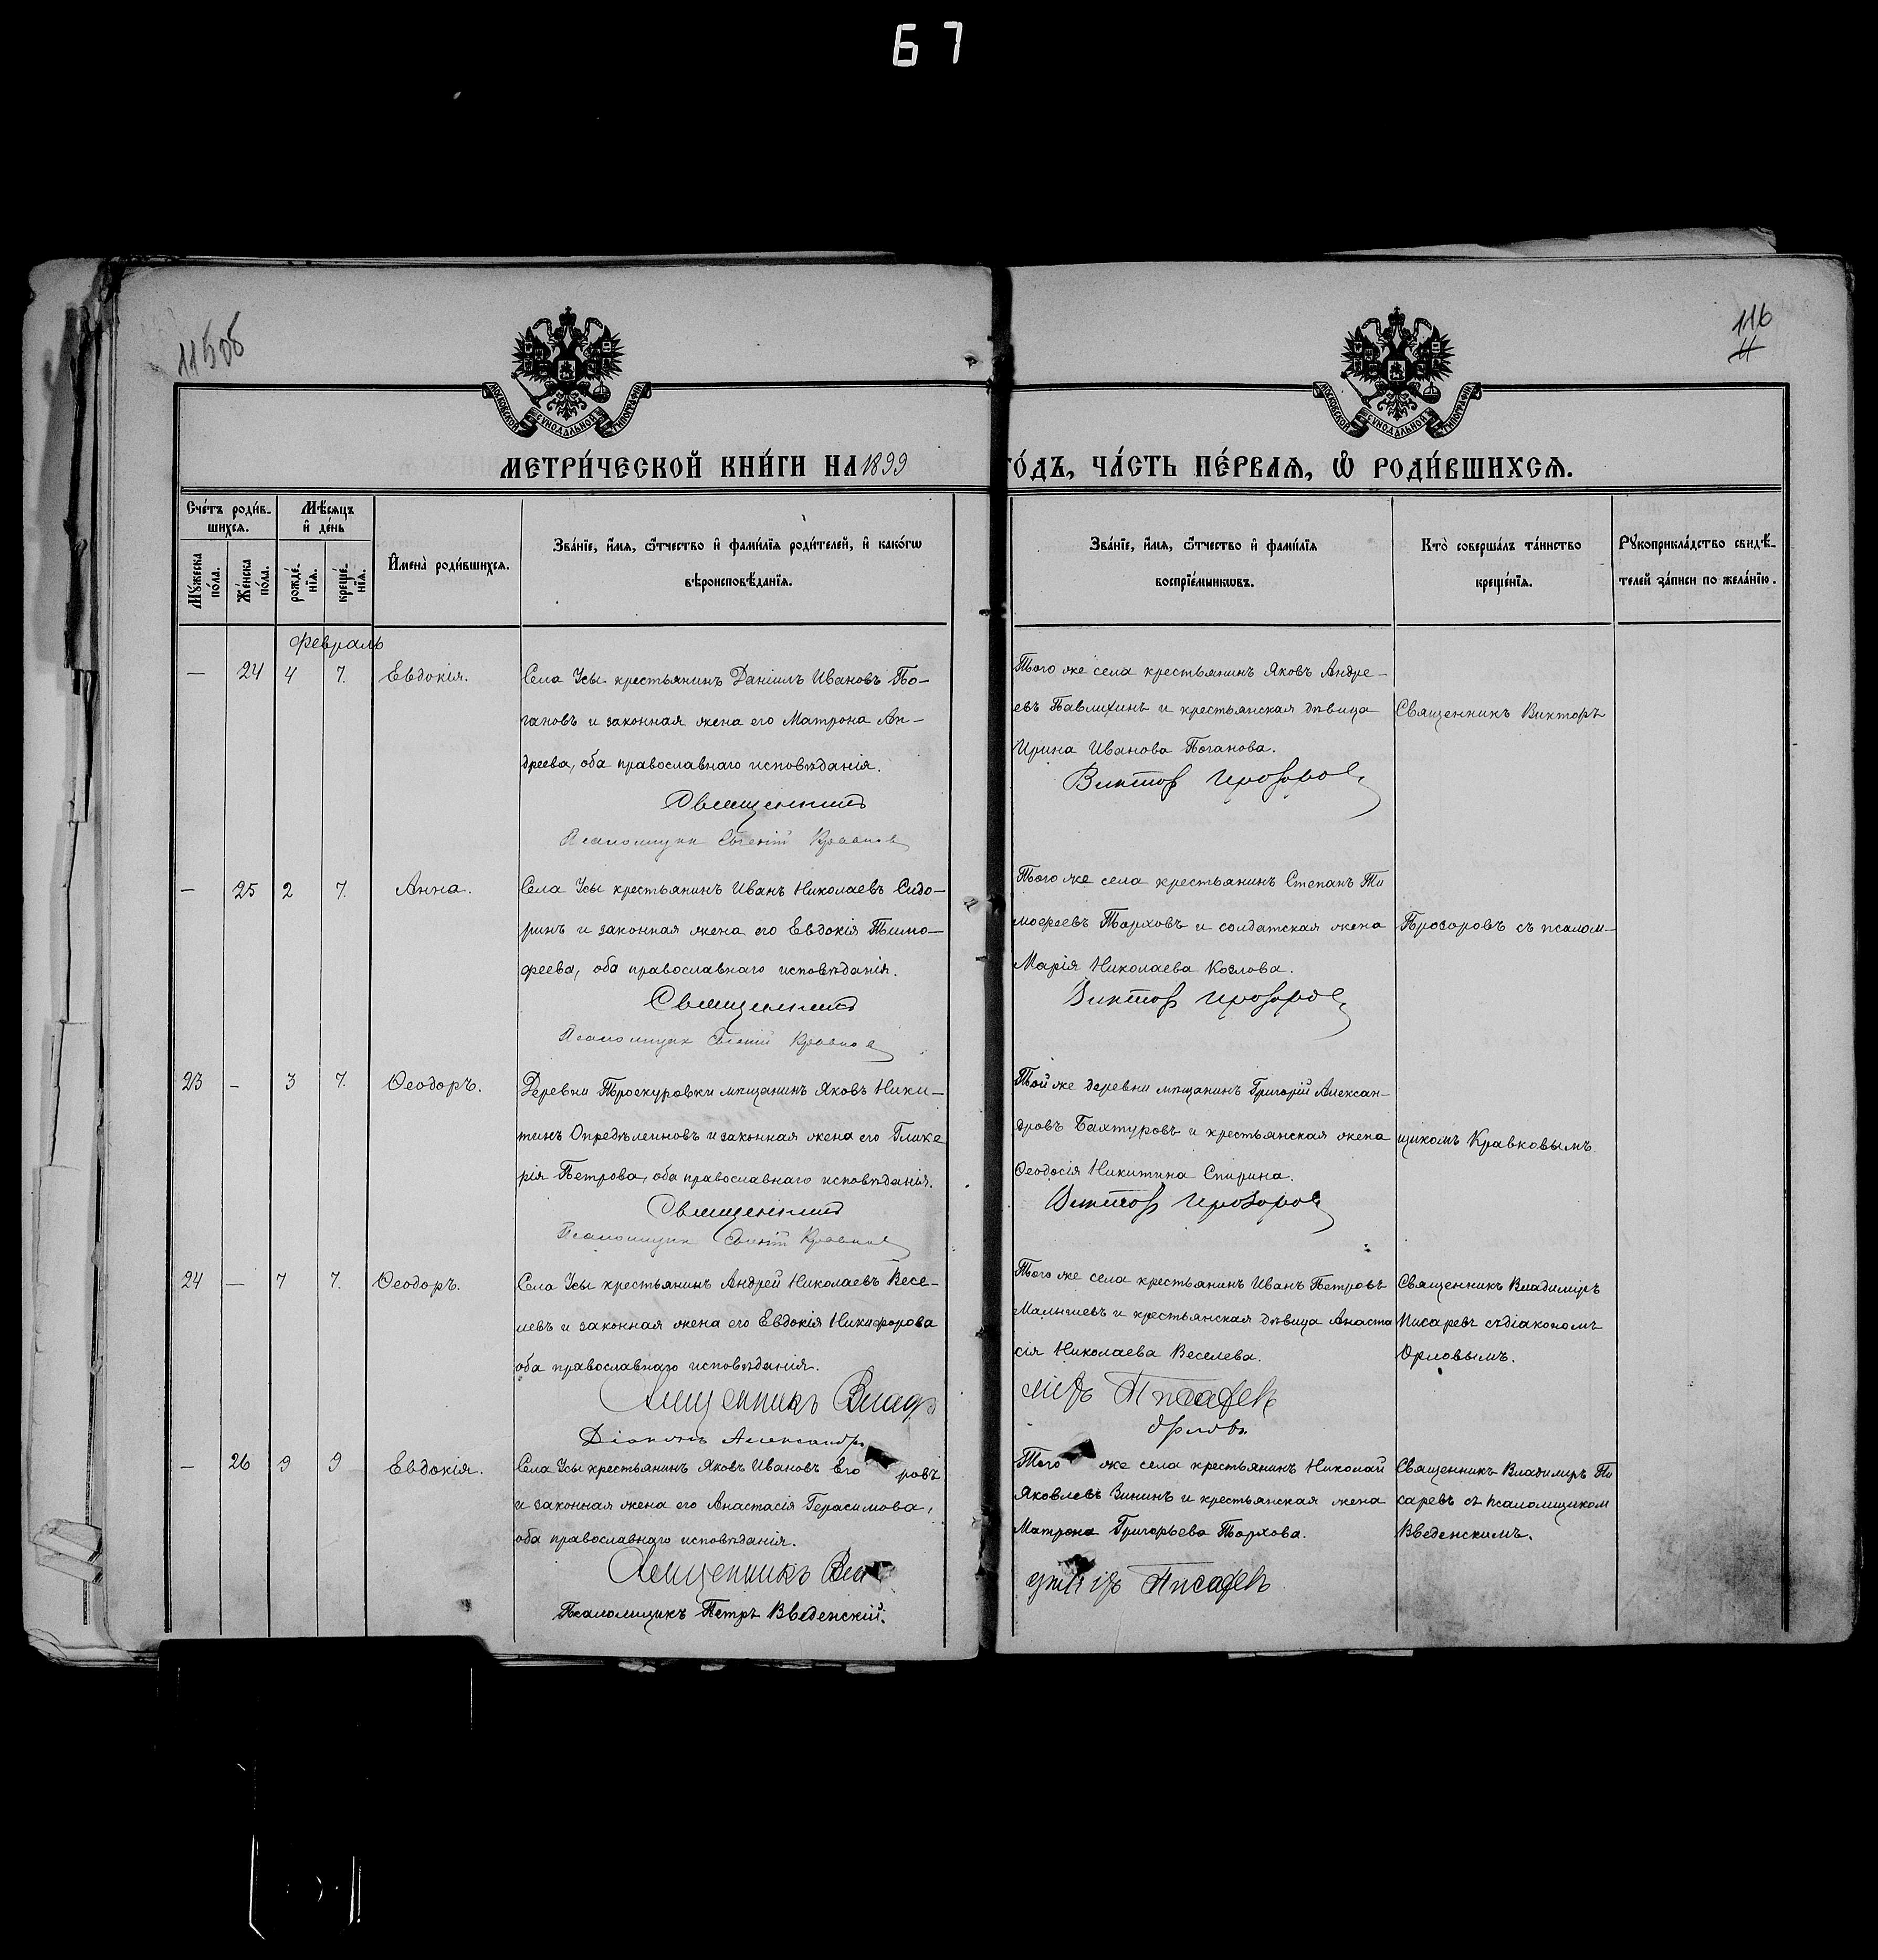 67
115об
116
11
МОСКОВСКОЙ СѴНОДАЛЬНОЙ ТИПОГРАФІИ
МОСКОВСКОЙ СѴНОДАЛЬНОЙ ТИПОГРАФІИ
МЕТРИ́ЧЕСКОЙ КНИ́ГИ НА 1899
ГО́ДЪ, ЧА́СТЬ ПЕ́РВАѦ, Ѽ РОДИ́ВШИХСѦ.
Сче́тъ роди́в-
шихсѧ.
Мѣ́сѧцъ
и҆ де́нь
Мꙋ́жеска
по́ла.
Же́нска
по́ла.
рожде́-
нїѧ.
креще́-
нїѧ.
И҆мена̀ роди́вшихсѧ.
Зва́нїе, и҆́мѧ, ѻ҆́тчество и҆ фами́лїѧ роди́телей, и҆ како́гѡ
вѣроисповѣ́данїѧ.
Зва́нїе, и҆́мѧ, ѻ҆́тчество и҆ фами́лїѧ
воспрїе́мникѡвъ.
Кто̀ соверша́лъ та́инство
креще́нїѧ.
Рꙋкоприкла́дство свидѣ́-
телей за́писи по жела́нїю.
Февраль
— 24 4 7. Евдокія.
Села Усы крестьянинъ Даніилъ Ивановъ По-
гановъ и законная жена его Матрона Ан-
дреева, оба православнаго исповѣданія.
Священникъ
Псаломщикъ Евгеній Кравков
Того же села крестьянинъ Яковъ Андре-
евъ Павлихинъ и крестьянская дѣвица
Ирина Иванова Поганова.
Виктор Прозоров
Священникъ Викторъ
— 25 2 7. Анна.
Села Усы крестьянинъ Иванъ Николаевъ Сидо-
ринъ и законная жена его Евдокія Тимо-
феева, оба православнаго исповѣданія.
Священникъ
Псаломщик Евгеній Кравков
Того же села крестьянинъ Степанъ Ти
мофеевъ Торховъ и солдатская жена
Марія Николаева Козлова.
Виктор Прозоров
Прозоровъ съ псалом-
23 — 3 7. Ѳеодоръ.
Деревни Троекуровки мѣщанинъ Яковъ Ники-
тинъ Опредѣленновъ и законная жена его Глике
рія Петрова, оба православнаго исповѣданія.
Священникъ
Псаломщик Евгеній Кравков
Той же деревни мѣщанинъ Григорій Алексан-
дровъ Бахтуровъ и крестьянская жена
Ѳеодосія Никитина Спирина.
Виктор Прозоров
щикомъ Кравковымъ.
24 — 7 7. Ѳеодоръ.
Села Усы крестьянинъ Андрей Николаевъ Весе-
левъ и законная жена его Евдокія Никифорова
оба православнаго исповѣданія.
Священникъ Влади
Діаконъ Александръ
Того же села крестьянинъ Иванъ Петровъ
Малышевъ и крестьянская дѣвица Анаста
сія Николаева Веселева.
міръ Писаревъ
Орловъ
Священникъ Владиміръ
Писаревъ съ діакономъ
Орловымъ.
— 26 9 9 Евдокія.
Села Усы крестьянинъ Яковъ Ивановъ Его ровъ
и законная жена его Анастасія Герасимова,
оба православнаго исповѣданія.
Священникъ Вла
Псаломщикъ Петръ Введенскій.
Того же села крестьянинъ Николай
Яковлевъ Зининъ и крестьянская жена
Матрона Григорьева Торхова.
міръ Писаревъ
Священникъ Владиміръ Пи
саревъ съ псаломщиком
Введенскимъ.